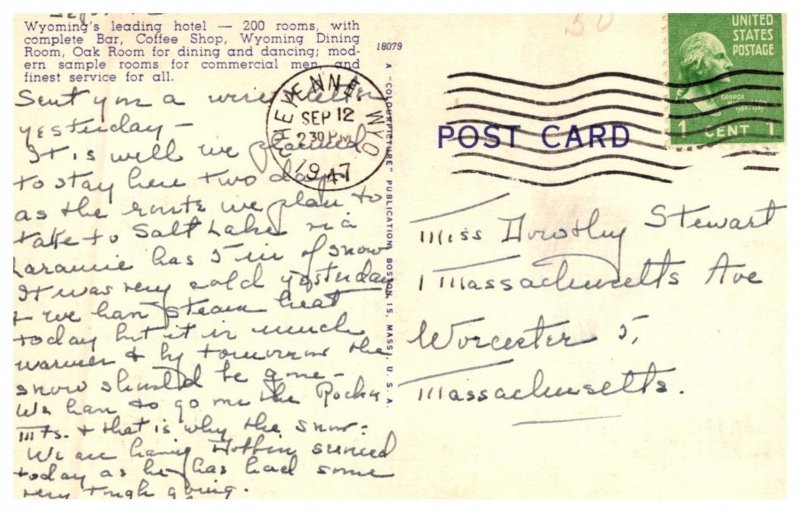 Sept. 12
Wyoming's leading hotel — 200 rooms, with
complete Bar, Coffee Shop, Wyoming Dining
Room, Oak Room for dining and dancing; mod-
ern sample rooms for commercial men, and
finest service for all.
Sent you a letter
yesterday —
It is well we planned
to stay here two days
as the route we plan to
take to Salt Lake via
Laramie has 5 in of snow
It was very cold yesterday
& we had steam heat
today but it is much
warmer & by tomorrow the
snow should be gone —
We have to go over the Rocky
Mts. & that is why the snow.
We are having serviced
today as he has had some
very tough going.
18079
A "COLOURPICTURE" PUBLICATION, BOSTON 15, MASS., U. S. A.
CHEYENNE, WYO.
SEP 12
2 30 PM
1947
POST CARD
UNITED
STATES
POSTAGE
GEORGE
1 CENT 1
Miss Dorothy Stewart
1 Massachusetts Ave
Worcester 5,
Massachusetts.